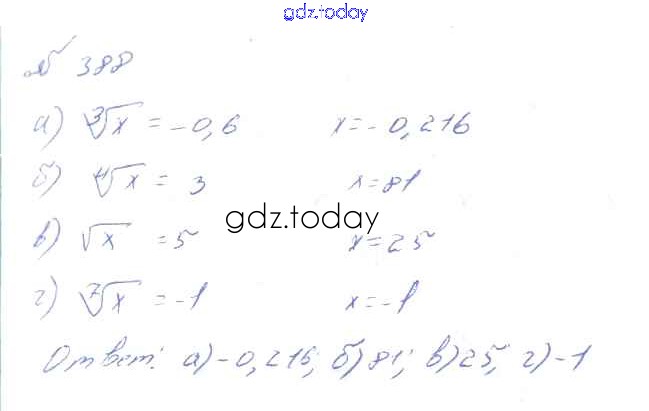 gdz.today
№ 388
а) ∛x = -0,6 x = -0,216
б) ∜x = 3 x = 81
gdz.today
в) √x = 5 x = 25
г) ⁷√x = -1 x = -1
Ответ: а) -0,216; б) 81; в) 25; г) -1